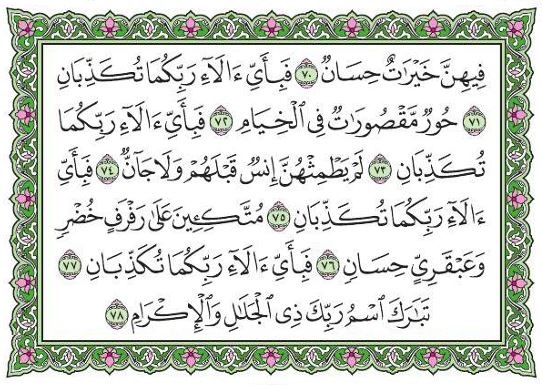 فِيهِنَّ خَيْرَٰتٌ حِسَانٌ ٧٠ فَبِأَيِّ ءَالَآءِ رَبِّكُمَا تُكَذِّبَانِ
٧١ حُورٌ مَّقْصُورَٰتٌ فِي الْخِيَامِ ٧٢ فَبِأَيِّ ءَالَآءِ رَبِّكُمَا
تُكَذِّبَانِ ٧٣ لَمْ يَطْمِثْهُنَّ إِنسٌ قَبْلَهُمْ وَلَا جَآنٌّ ٧٤ فَبِأَيِّ
ءَالَآءِ رَبِّكُمَا تُكَذِّبَانِ ٧٥ مُتَّكِـِٔينَ عَلَىٰ رَفْرَفٍ خُضْرٍ
وَعَبْقَرِيٍّ حِسَانٍ ٧٦ فَبِأَيِّ ءَالَآءِ رَبِّكُمَا تُكَذِّبَانِ ٧٧
تَبَٰرَكَ اسْمُ رَبِّكَ ذِي الْجَلَٰلِ وَالْإِكْرَامِ ٧٨